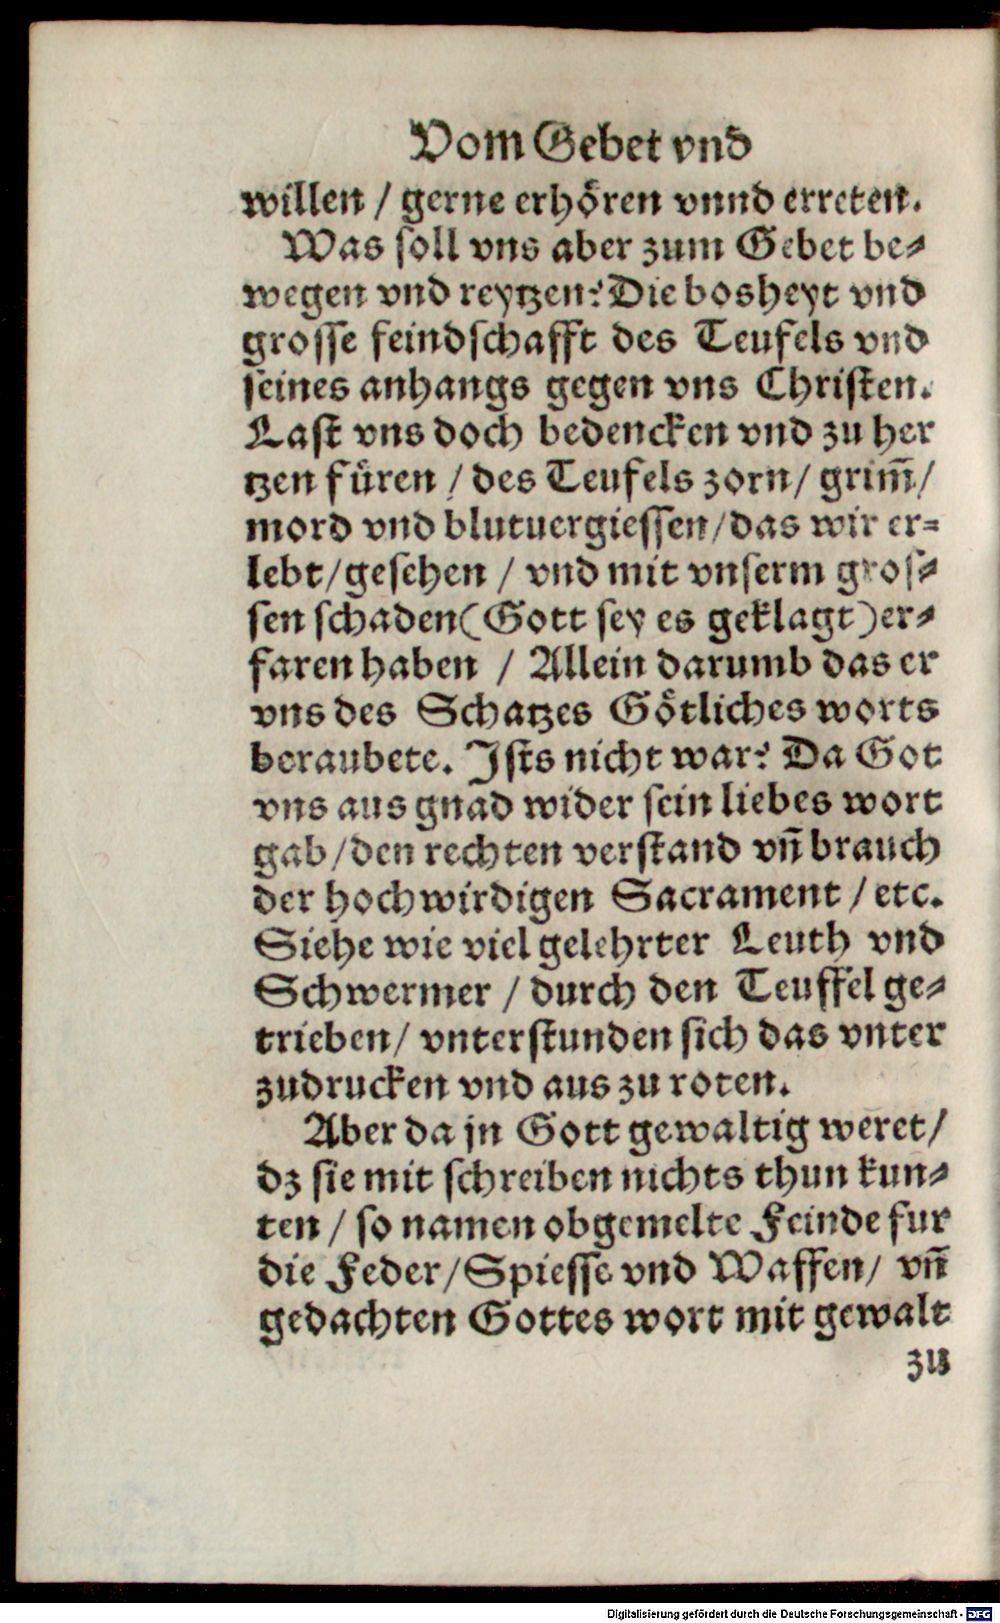 Vom Gebet vnd
willen / gerne erhoͤren vnnd erreten.
Was soll vns aber zum Gebet be-
wegen vnd reytzen? Die bosheyt vnd
grosse feindschafft des Teufels vnd
seines anhangs gegen vns Christen.
Last vns doch bedencken vnd zu her
tzen fuͤren / des Teufels zorn / grim̃ /
mord vnd blutuergiessen / das wir er-
lebt / gesehen / vnd mit vnserm gros-
sen schaden (Gott sey es geklagt) er-
faren haben / Allein darumb das er
vns des Schatzes Goͤtliches worts
beraubete. Ists nicht war? Da Got
vns aus gnad wider sein liebes wort
gab / den rechten verstand vñ brauch
der hochwirdigen Sacrament / etc.
Siehe wie viel gelehrter Leuth vnd
Schwermer / durch den Teuffel ge-
trieben / vnterstunden sich das vnter
zudrucken vnd aus zu roten.
Aber da jn Gott gewaltig weret /
dz sie mit schreiben nichts thun kun-
ten / so namen obgemelte Feinde fur
die Feder / Spiesse vnd Waffen / vñ
gedachten Gottes wort mit gewalt
zu
Digitalisierung gefördert durch die Deutsche Forschungsgemeinschaft - DFG